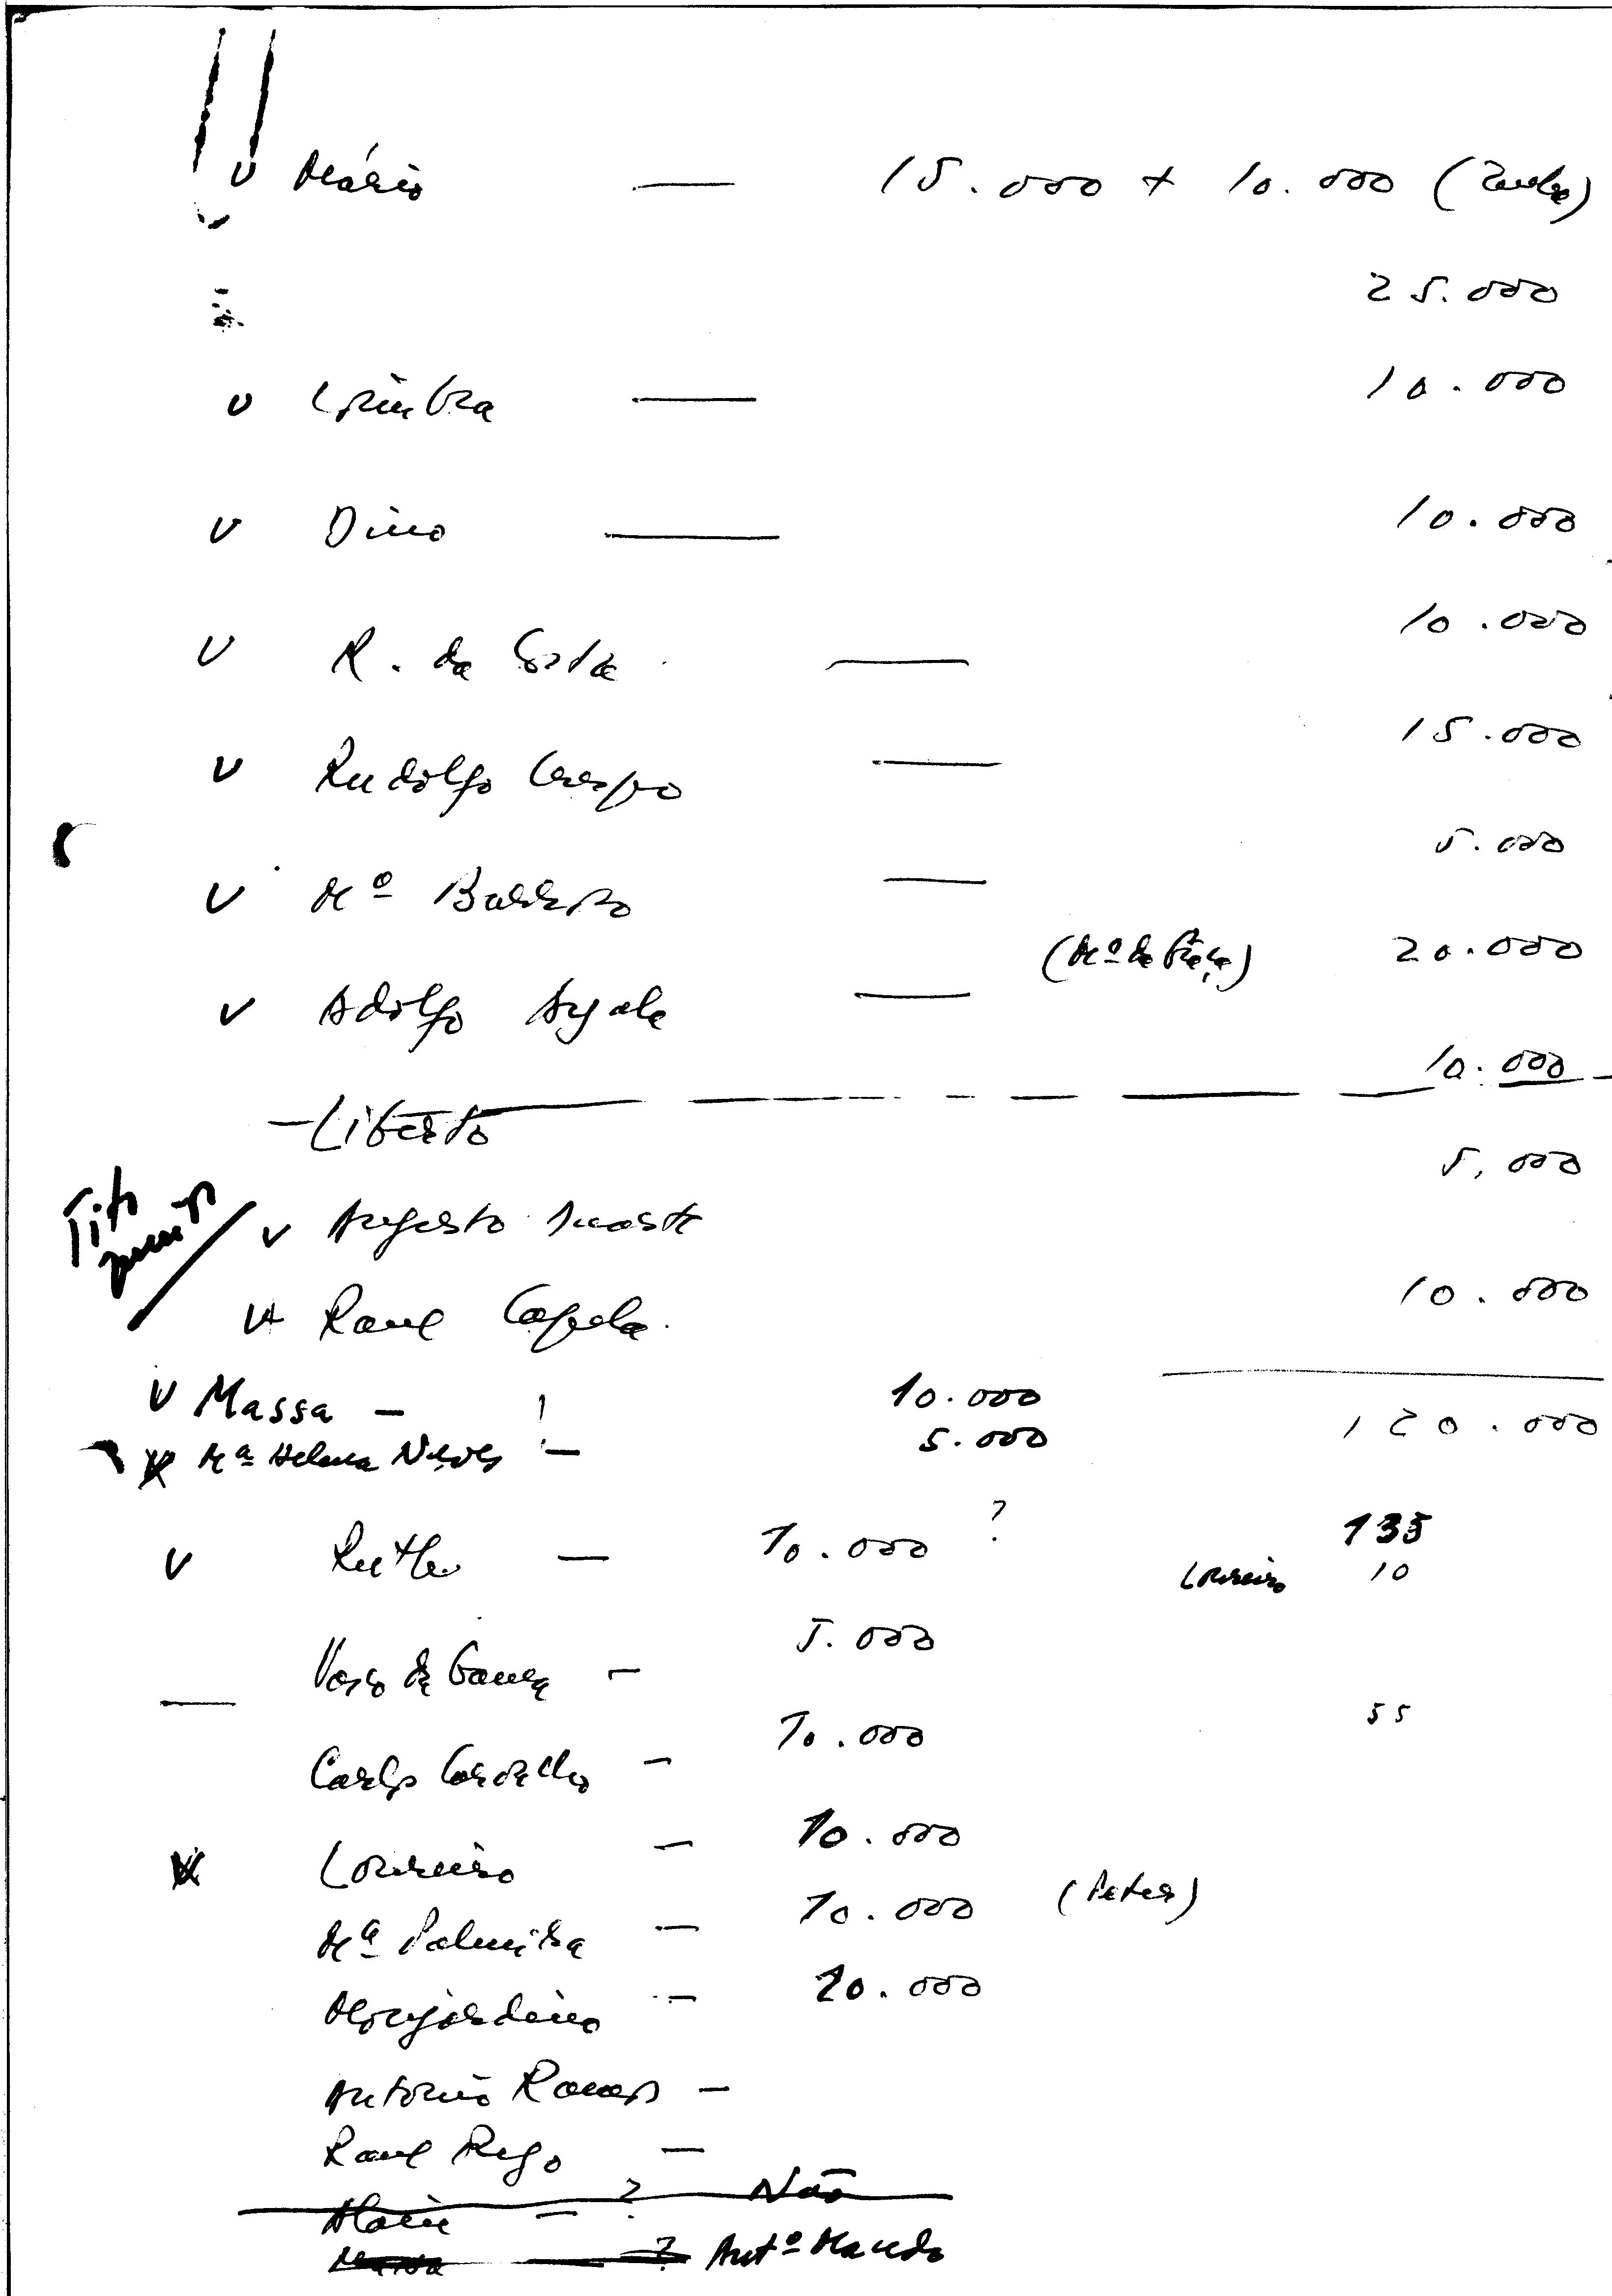 v Mário — 15.000 + 10.000
25.000
v Coimbra — 10.000
v Dino — 10.000
v R. da Costa — 10.000
v Rudolfo Crespo — 15.000
v Mº Barroso — 5.000
v Adolfo Ayala — (Mº da Graça) 20.000
— Liberto 10.000
Tito
v Augusto 5.000
v Raul Capela 10.000
v Massa — ! 10.000 120.000
Mª Helena Neves — 5.000
135
v Ruther — 10.000 ?
Loureiro 10
— Vasco da Gama — 5.000
55
Carlos Carvalho — 10.000
Loureiro — 10.000
Mª Palmira — 10.000 (Peter)
Monjardino — 20.000
António Ramos —
Raul Rego —
— ? Não
— ? Antº Macedo